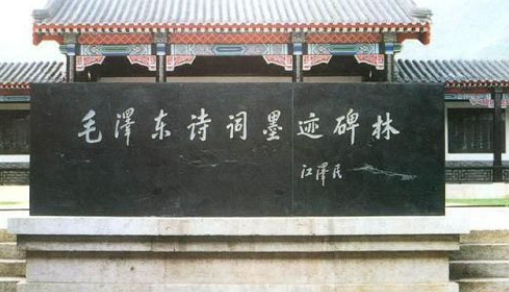 毛澤东诗词墨迹碑林
江澤民